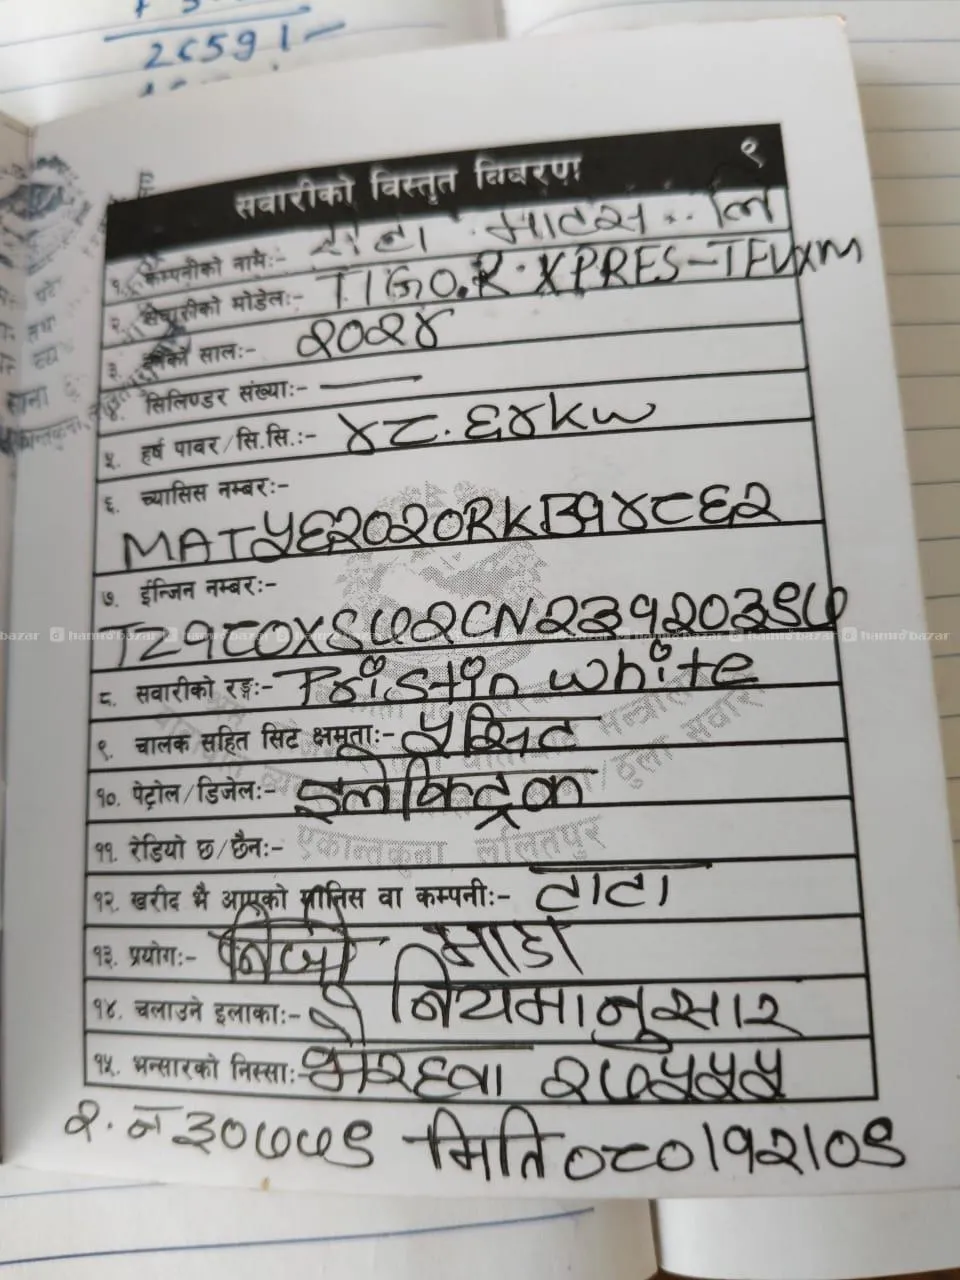 26591-
९
सवारीको विस्तृत विवरण
१. कम्पनीको नामः- टाटा माटस.. लि
२. सवारीको मोडेलः- TIGO.R.XPRES-TEVXM
३. बनेको सालः- २०२४
४. सिलिण्डर संख्याः- —
५. हर्ष पावर/सि.सि.ः- ४८.६४KW
६. च्यासिस नम्बरः-
MATY५६२०२०RKB९४८६२
७. ईन्जिन नम्बरः-
TZ१८०XS७२CN२३१२०३९७
८. सवारीको रङ्गः- Pristin white
९. चालक सहित सिट क्षमताः- ५ सिट
१०. पेट्रोल/डिजेलः- इलेक्ट्रिक
११. रेडियो छ/छैनः-
एकान्तकुना ललितपुर
१२. खरीद भै आएको मानिस वा कम्पनीः- टाटा
१३. प्रयोगः- निजी भाडा
१४. चलाउने इलाकाः- ऐ नियमानुसार
१५. भन्सारको निस्साः- भैरहवा २७५५५
र. न ३०७७९ मिति ०८०।१२।०९
hamrobazar hamrobazar hamrobazar hamrobazar hamrobazar